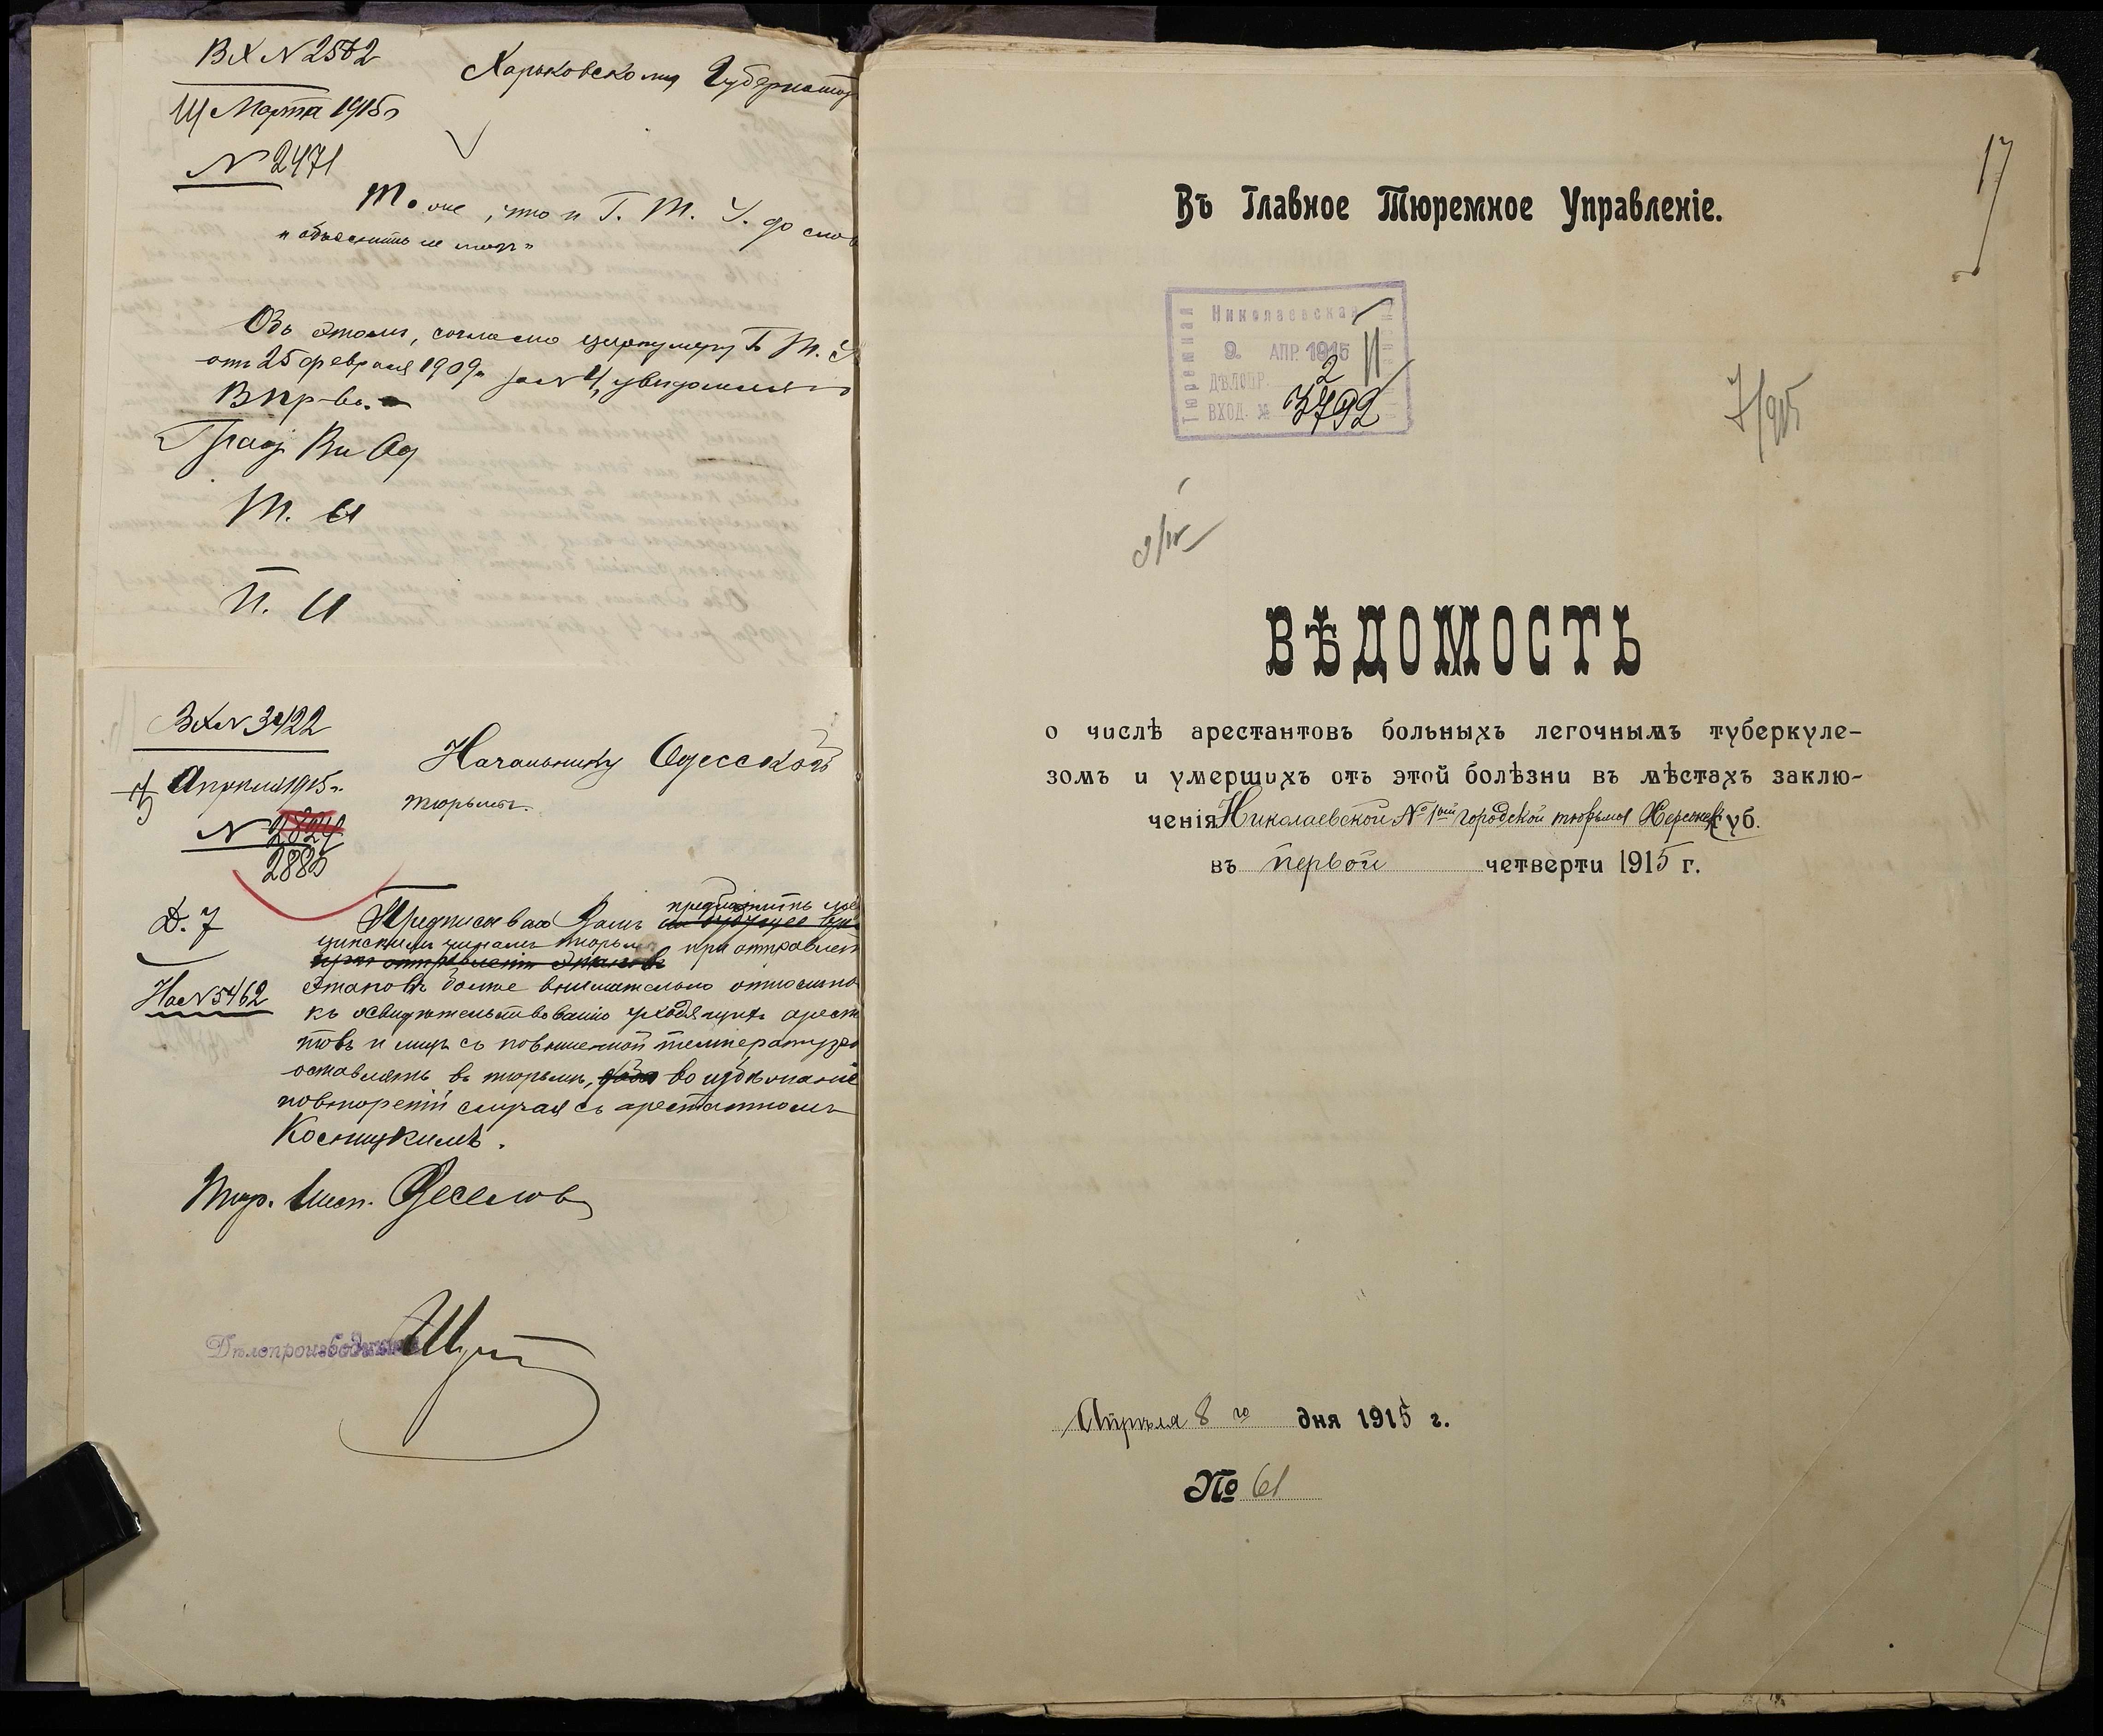 ВХ № 2562
Харьковскому Губернатор
Марта 1915 г
№ 2471
Тоже, что и Г. Т. У. до слов
"объяснить не могу"
Объ этомъ, согласно циркуляру Г. Т. У
отъ 25 февраля 1909 г. за № 4, увѣдомляю
В пр-во.
Град Ви Од
Т. И
П. И
Вх № 3422
Начальнику Одесской
Апрѣля 1915 г.
тюрьмы.
№ 2824
2885
Д. 7
На № 5462
Предписываю Вамъ предложить
цинскимъ чинамъ тюрьмы при отправлен
при отправленіи этаповъ
этаповъ болѣе внимательно относит
къ освидѣтельствованію уходящихъ арест
товъ и лицъ съ повышенной температурой
оставлять въ тюрьмѣ, во избѣжаніе
повтореній случая съ арестантомъ
Косницкимъ.
Тюр. Инсп. Веселов
Дѣлопроизводитель
17
Въ Главное Тюремное Управленіе.
Николаевская
Тюремная
9. АПР. 1915
ДѢЛОПР. 2
ВХОД. № 3792
7/915
ВѢДОМОСТЬ
о числѣ арестантовъ больныхъ легочнымъ туберкуле-
зомъ и умершихъ отъ этой болѣзни въ мѣстахъ заклю-
ченія Николаевской № 1ой городской тюрьмы Херсонск губ.
въ первой четверти 1915 г.
Апрѣля 8 го дня 1915 г.
№ 61